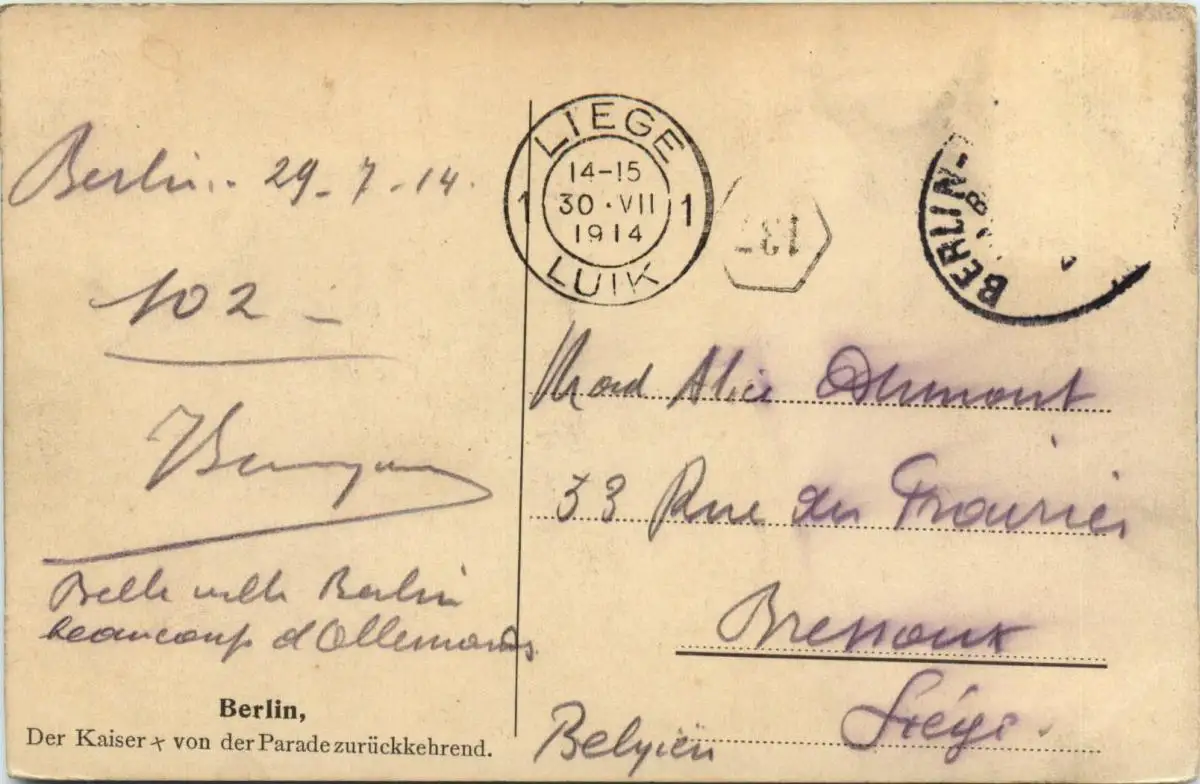 Berlin.. 29-7-14.
102-
Belle ville Berlin
beaucoup d'Allemands
Berlin,
Der Kaiser x von der Parade zurückkehrend.
LIEGE
1 14-15 1
30·VII
1914
LUIK
137
BERLIN-
Alice
33 Rue du
Bressoux
Liége.
Belgien